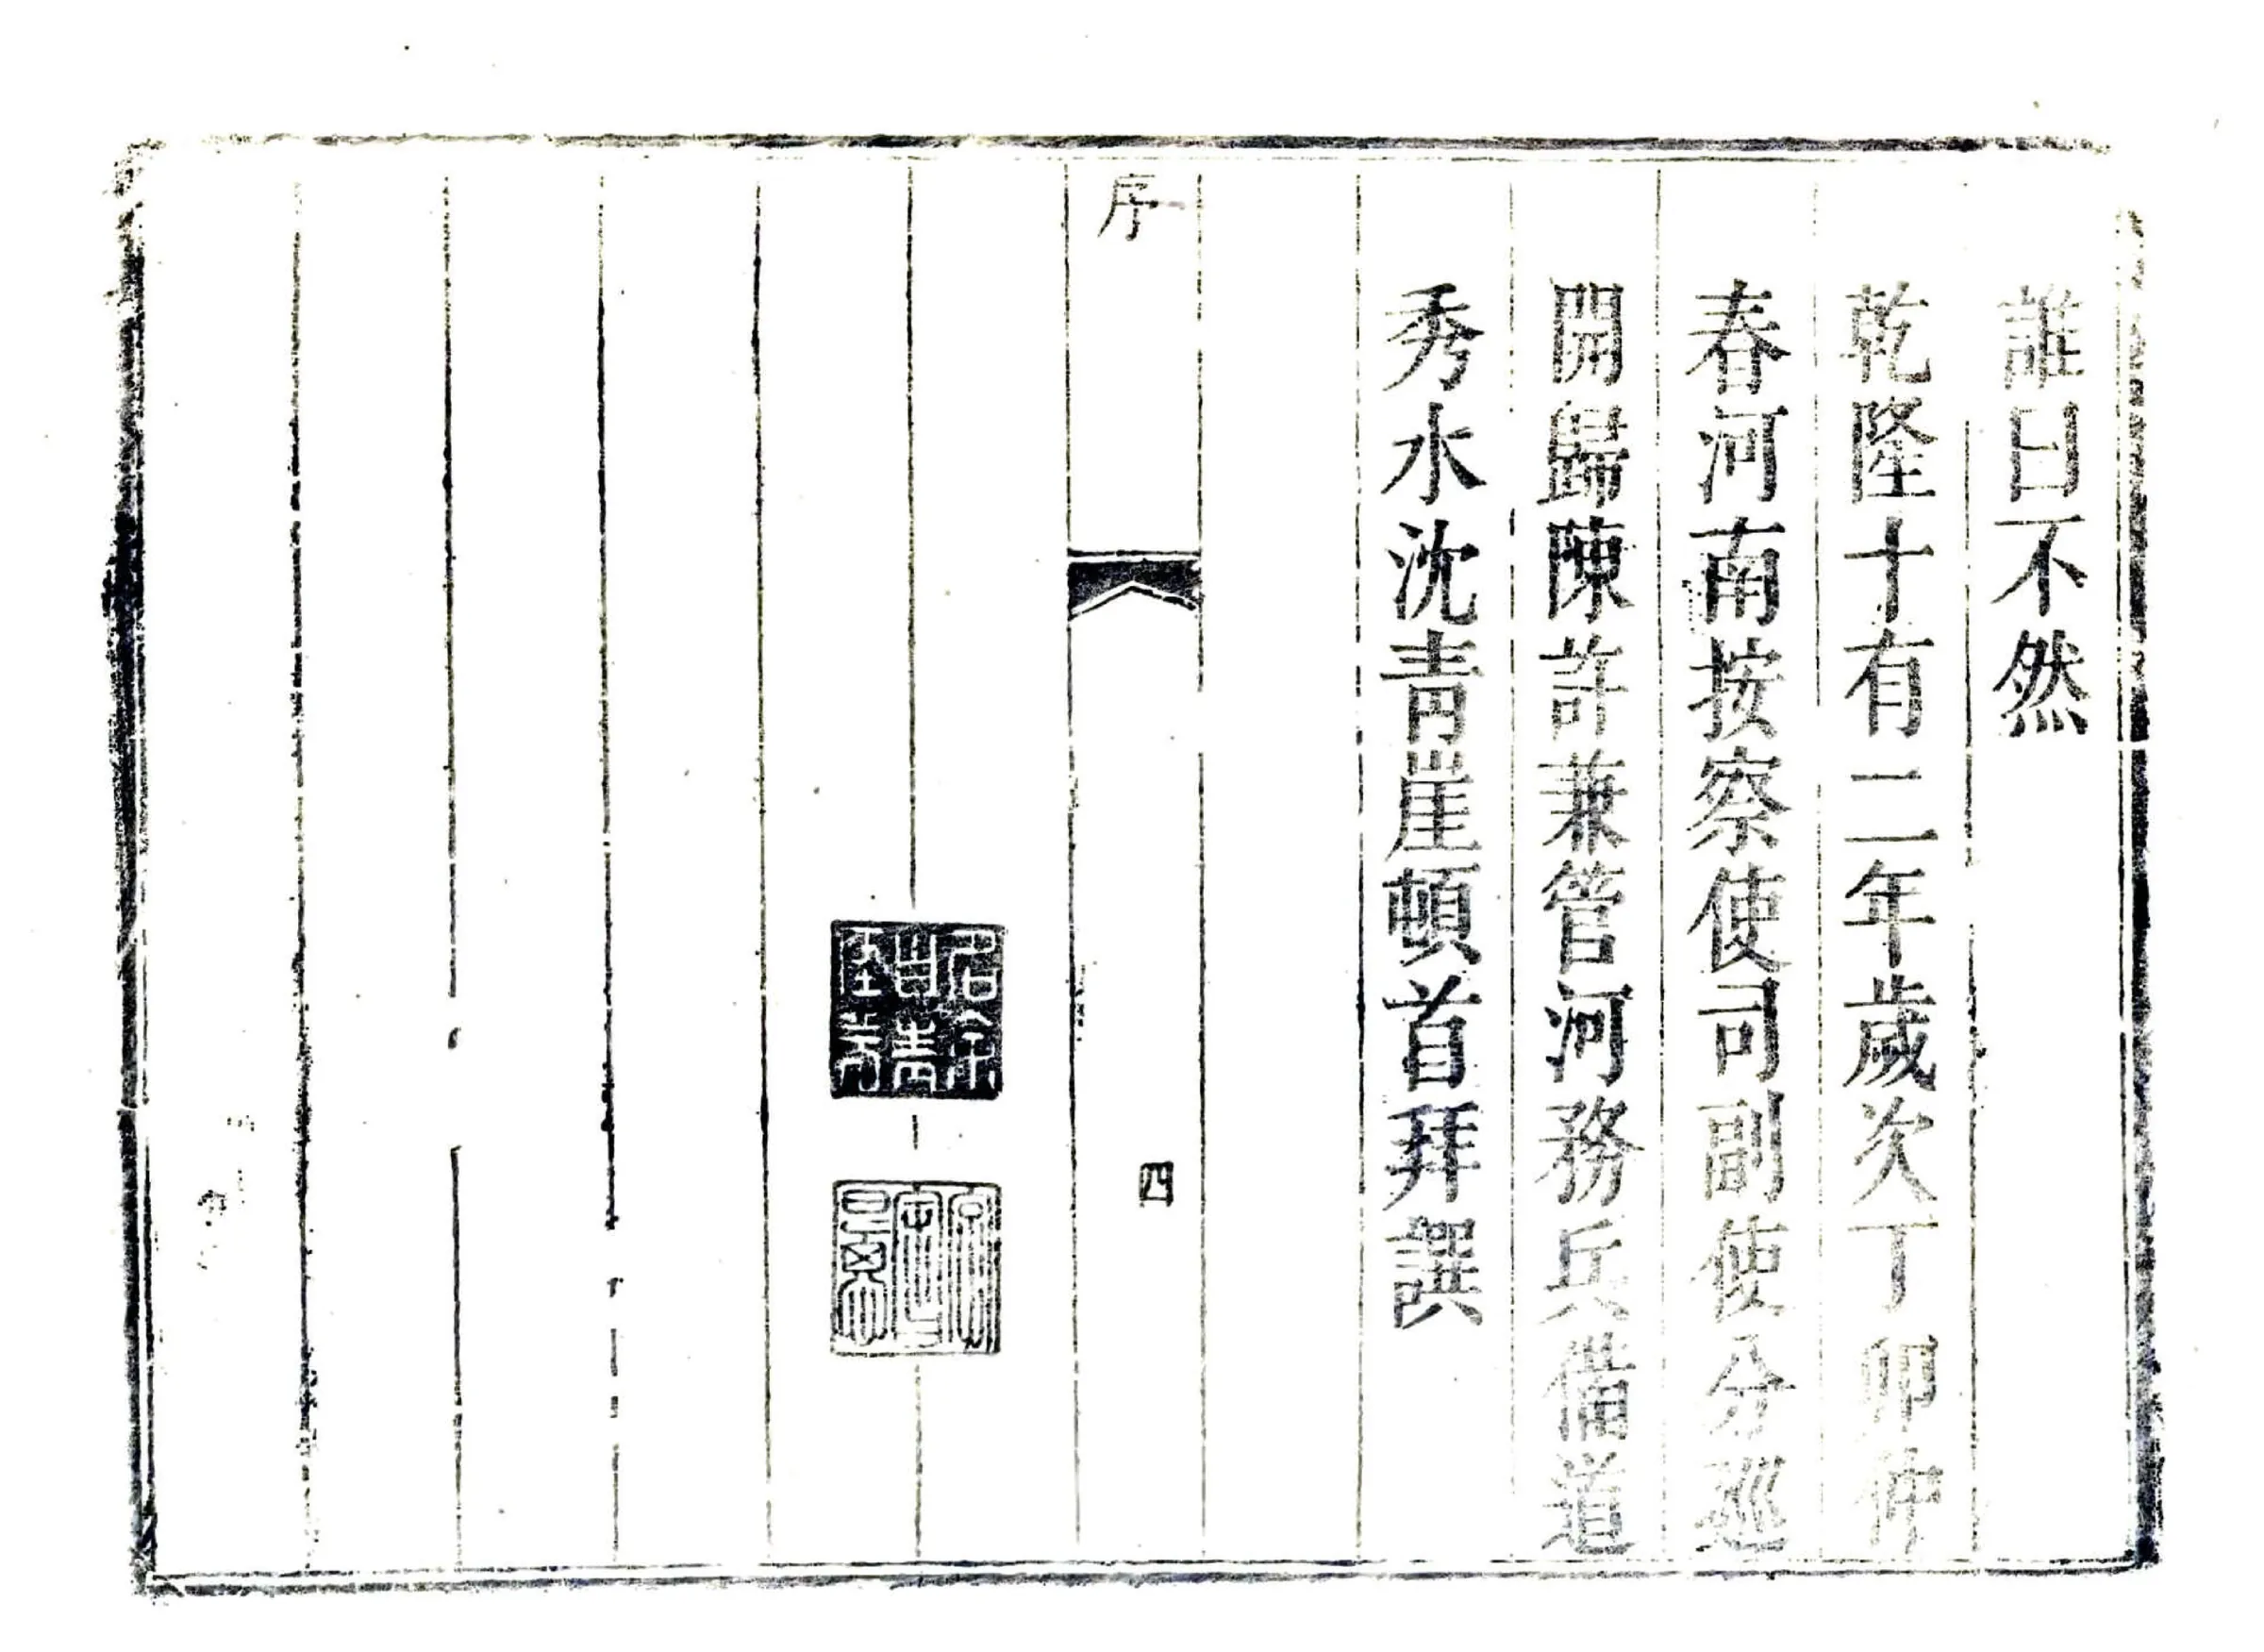 誰曰不然
乾隆十有二年歲次丁卯仲
春河南按察使司副使分廵
開歸陳許兼管河務兵備道
秀水沈青崖頓首拜譔
序
四